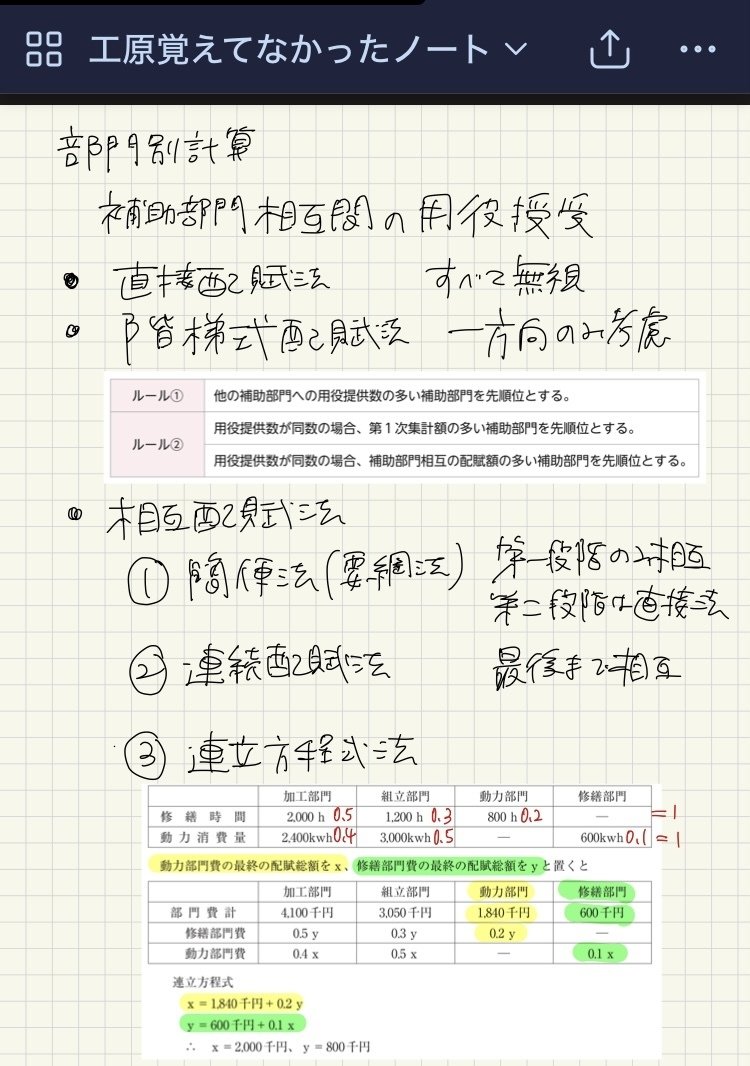 工原覚えてなかったノート
部門別計算
補助部門相互間の用役授受
• 直接配賦法 すべて無視
• 階梯式配賦法 一方向のみ考慮
ルール① 他の補助部門への用役提供数の多い補助部門を先順位とする。
ルール② 用役提供数が同数の場合、第1次集計額の多い補助部門を先順位とする。
用役提供数が同数の場合、補助部門相互の配賦額の多い補助部門を先順位とする。
• 相互配賦法
① 簡便法(要綱法) 第一段階のみ相互
第二段階は直接法
② 連続配賦法 最後まで相互
③ 連立方程式法
加工部門 組立部門 動力部門 修繕部門
修繕時間 2,000 h 0.5 1,200 h 0.3 800 h 0.2 — =1
動力消費量 2,400kwh 0.4 3,000kwh 0.5 — 600kwh 0.1 =1
動力部門費の最終の配賦総額をx、修繕部門費の最終の配賦総額をyと置くと
加工部門 組立部門 動力部門 修繕部門
部門費計 4,100千円 3,050千円 1,840千円 600千円
修繕部門費 0.5 y 0.3 y 0.2 y —
動力部門費 0.4 x 0.5 x — 0.1 x
連立方程式
x = 1,840千円 + 0.2 y
y = 600千円 + 0.1 x
∴ x = 2,000千円、y = 800千円